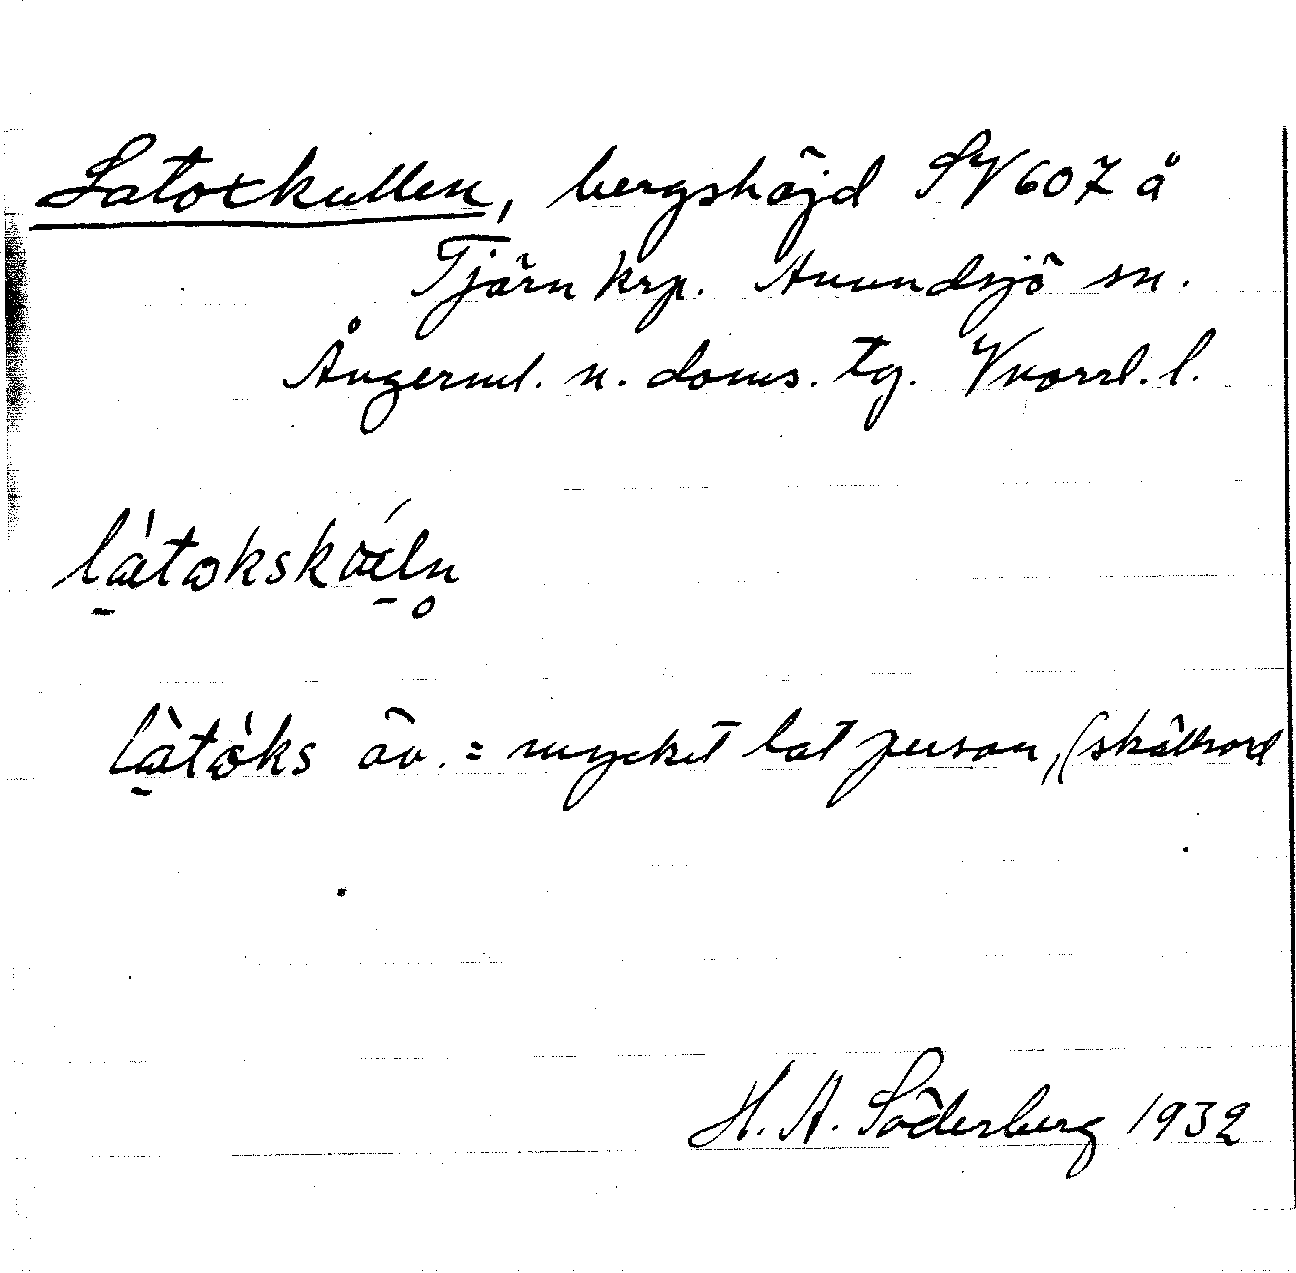 Latoxkullen, bergshöjd SV 607 å
Tjärn krp. Anundsjö sn.
Ångerml. n. doms. tg. Vnorrl. l.
làtoks äv. = mycket lat person, (skällsord
H. A. Söderberg 1932